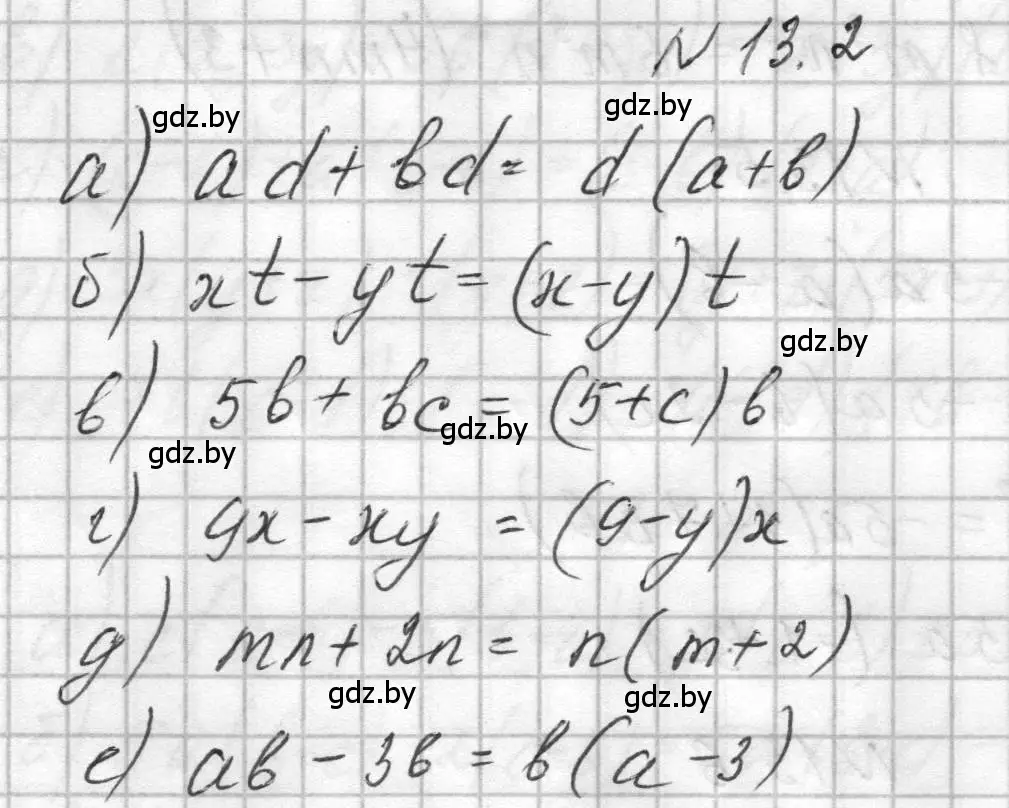 № 13.2
gdz.by gdz.by
а) ad + bd = d (a+b)
б) xt - yt = (x-y) t
gdz.by
в) 5b + bc = (5+c) b
gdz.by
gdz.by
г) 9x - xy = (9-y)x
д) mn + 2n = n (m+2)
gdz.by gdz.by
е) ab - 3b = b (a-3)